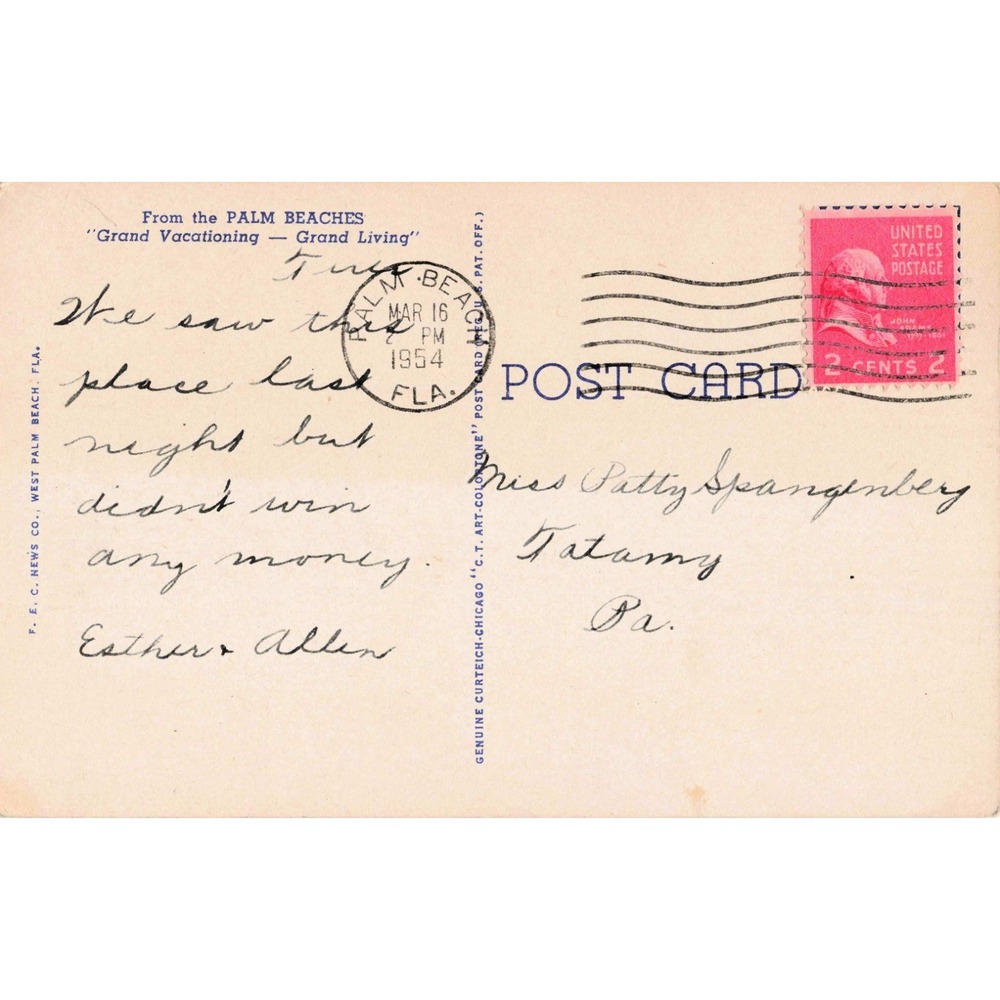 From the PALM BEACHES
"Grand Vacationing — Grand Living"
Tues.
We saw this
place last
night but
didn't win
any money.
Esther + Allen
PALM BEACH
MAR 16
2 PM
1954
FLA.
UNITED
STATES
POSTAGE
JOHN
ADAMS
1797-1801
2 CENTS 2
POST CARD
Miss Patty Spangenberg
Tatamy
Pa.
F. E. C. NEWS CO., WEST PALM BEACH, FLA.
GENUINE CURTEICH-CHICAGO "C. T. ART-COLORTONE" POST CARD (REG. U. S. PAT. OFF.)